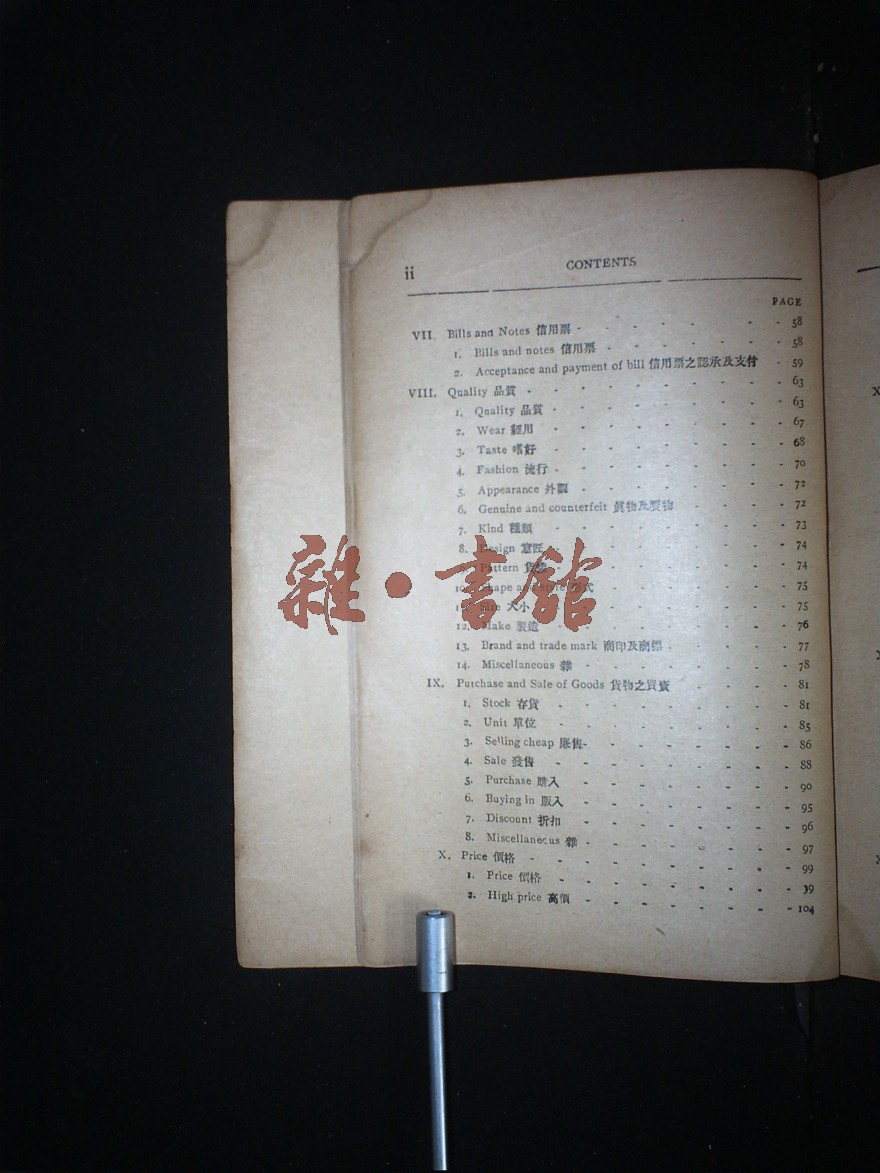 ii
CONTENTS
PAGE
VII. Bills and Notes 信用票 - 58
1. Bills and notes 信用票 - 58
2. Acceptance and payment of bill 信用票之認承及支付 - 59
VIII. Quality 品質 - 63
1. Quality 品質 - 63
2. Wear 經用 - 67
3. Taste 嗜好 - 68
4. Fashion 流行 - 70
5. Appearance 外觀 - 72
6. Genuine and counterfeit 眞物及贋物 - 72
7. Kind 種類 - 73
8. Design 意匠 - 74
Pattern - 74
Shape and style 形式 - 75
大小 - 75
12. Make 製造 - 76
13. Brand and trade mark 商印及商標 - 77
14. Miscellaneous 雜 - 78
IX. Purchase and Sale of Goods 貨物之買賣 - 81
1. Stock 存貨 - 81
2. Unit 單位 - 85
3. Selling cheap 賤售 - 86
4. Sale 發售 - 88
5. Purchase 購入 - 90
6. Buying in 販入 - 95
7. Discount 折扣 - 96
8. Miscellaneous 雜 - 97
X. Price 價格 - 99
1. Price 價格 - 39
2. High price 高價 - 104
雜·書館